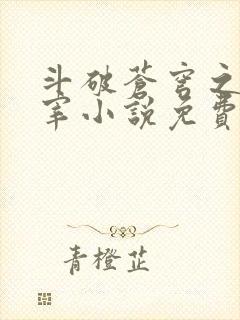 斗破蒼穹之
宰小說免費
青橙芷